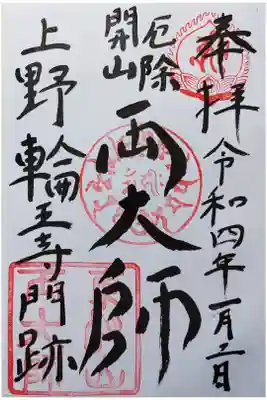 奉拝
令和四年一月二日
厄除
開山
両大師
上野輪王寺門跡